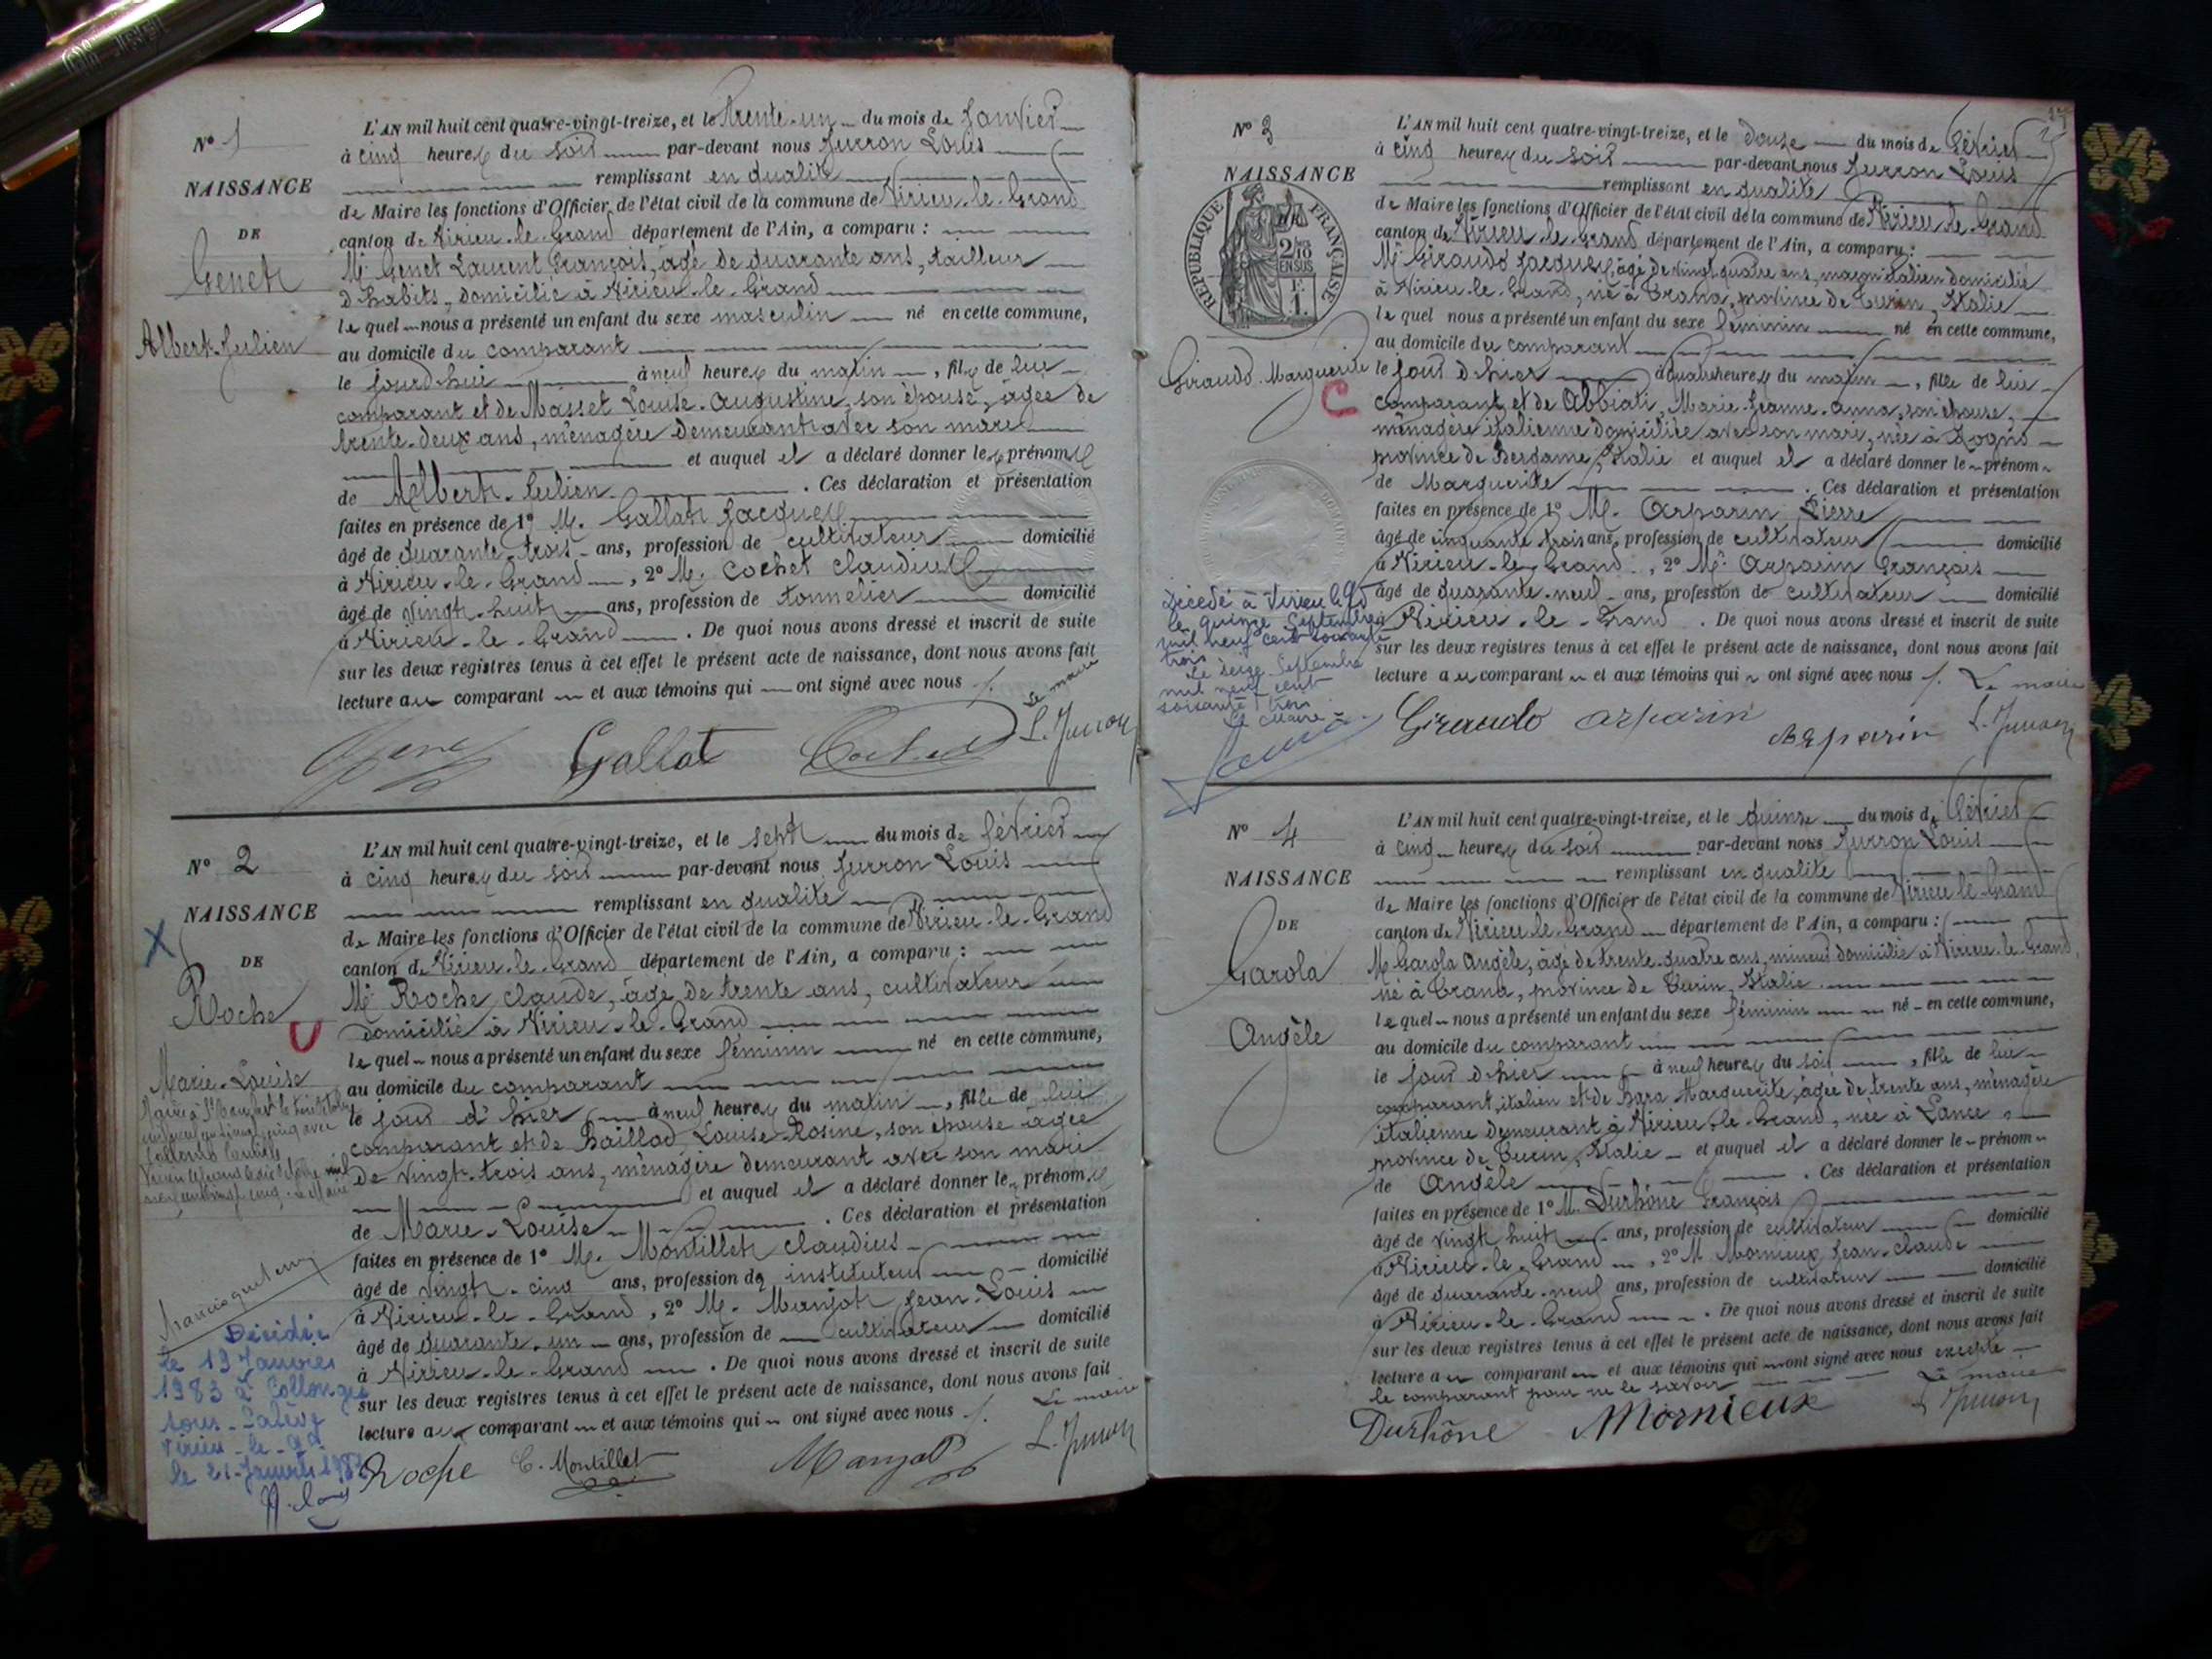 N° 1
NAISSANCE
DE
Genet
Albert-Julien
L'AN mil huit cent quatre-vingt-treize, et le trente-un du mois de Janvier
à cinq heures du soir par-devant nous Jurron Louis
remplissant en qualité
de Maire les fonctions d'Officier de l'état civil de la commune de Virieu-le-Grand
canton de Virieu-le-Grand département de l'Ain, a comparu :
Mr Genet Laurent François, âgé de quarante ans, tailleur
d'habits, domicilié à Virieu-le-Grand
lequel nous a présenté un enfant du sexe masculin né en cette commune,
au domicile du comparant
le jourd'hui à neuf heures du matin, fils de lui
comparant et de Masset Louise-Augustine, son épouse, âgée de
trente-deux ans, ménagère demeurant avec son mari
et auquel il a déclaré donner les prénoms
de Albert-Julien. Ces déclaration et présentation
faites en présence de 1° M. Gallat Jacques
âgé de quarante-trois ans, profession de cultivateur domicilié
à Virieu-le-Grand, 2° M. Cochet Claudius
âgé de vingt-huit ans, profession de tonnelier domicilié
à Virieu-le-Grand. De quoi nous avons dressé et inscrit de suite
sur les deux registres tenus à cet effet le présent acte de naissance, dont nous avons fait
lecture au comparant et aux témoins qui ont signé avec nous
Le maire
Gallat
L. Jurron
N° 2
NAISSANCE
DE
Roche
Marie-Louise
L'AN mil huit cent quatre-vingt-treize, et le sept du mois de février
à cinq heures du soir par-devant nous Jurron Louis
remplissant en qualité
de Maire les fonctions d'Officier de l'état civil de la commune de Virieu-le-Grand
canton de Virieu-le-Grand département de l'Ain, a comparu :
Mr Roche Claude, âgé de trente ans, cultivateur
domicilié à Virieu-le-Grand
lequel nous a présenté un enfant du sexe féminin né en cette commune,
au domicile du comparant
le jour d'hier à neuf heures du matin, fille de lui
comparant et de Baillod Louise-Rosine, son épouse âgée
de vingt-trois ans, ménagère demeurant avec son mari
et auquel il a déclaré donner les prénoms
de Marie-Louise. Ces déclaration et présentation
faites en présence de 1° M. Montillet Claudius
âgé de vingt-cinq ans, profession de instituteur domicilié
à Virieu-le-Grand, 2° M. Manjot Jean-Louis
âgé de quarante-un ans, profession de cultivateur domicilié
à Virieu-le-Grand. De quoi nous avons dressé et inscrit de suite
sur les deux registres tenus à cet effet le présent acte de naissance, dont nous avons fait
lecture au comparant et aux témoins qui ont signé avec nous
Le maire
Décédée
le 19 Janvier
1983 à Collonges
sous-Salève
Virieu-le-Gd
le 21 Janvier 1983
Roche C. Montillet Manjot L. Jurron
N° 3
NAISSANCE
RÉPUBLIQUE FRANÇAISE
2/10 EN SUS
Giraudo Marguerite
C
L'AN mil huit cent quatre-vingt-treize, et le douze du mois de février
à cinq heures du soir par-devant nous Jurron Louis
remplissant en qualité
de Maire les fonctions d'Officier de l'état civil de la commune de Virieu-le-Grand
canton de Virieu-le-Grand département de l'Ain, a comparu :
Mr Giraudo Jacques, âgé de vingt quatre ans, maçon italien domicilié
à Virieu-le-Grand, né à Trana, province de Turin, Italie
lequel nous a présenté un enfant du sexe féminin né en cette commune,
au domicile du comparant
le jour d'hier à quatre heures du matin, fille de lui
comparant et de Abbiati, Marie-Jeanne-Anna, son épouse,
ménagère italienne domiciliée avec son mari, née à Zogno
province de Bergame, Italie et auquel il a déclaré donner le prénom
de Marguerite. Ces déclaration et présentation
faites en présence de 1° M. Arparin Pierre
âgé de cinquante trois ans, profession de cultivateur domicilié
à Virieu-le-Grand, 2° Mr Arparin François
âgé de quarante-neuf ans, profession de cultivateur domicilié
à Virieu-le-Grand. De quoi nous avons dressé et inscrit de suite
sur les deux registres tenus à cet effet le présent acte de naissance, dont nous avons fait
lecture au comparant et aux témoins qui ont signé avec nous Le maire
Décédé à Virieu le Gd
le quinze Septembre
mil neuf cent soixante
trois
Le seize Septembre
mil neuf cent
soixante trois
Le Maire
Giraudo arparin arparin L. Jurron
N° 4
NAISSANCE
DE
Garola
Angèle
L'AN mil huit cent quatre-vingt-treize, et le quinze du mois de février
à cinq heures du soir par-devant nous Jurron Louis
remplissant en qualité
de Maire les fonctions d'Officier de l'état civil de la commune de Virieu-le-Grand
canton de Virieu-le-Grand département de l'Ain, a comparu :
Mr Garola Angèle, âgé de trente-quatre ans, mineur domicilié à Virieu-le-Grand,
né à Trana, province de Turin, Italie
lequel nous a présenté un enfant du sexe féminin né en cette commune,
au domicile du comparant
le jour d'hier à neuf heures du soir, fille de lui
comparant, italien et de Marguerite, âgée de trente ans, ménagère
italienne demeurant à Virieu-le-Grand, née à
province de Turin, Italie et auquel il a déclaré donner le prénom
de Angèle. Ces déclaration et présentation
faites en présence de 1° M. Durhône François
âgé de vingt huit ans, profession de cultivateur domicilié
à Virieu-le-Grand, 2° M. Mornieux Jean-Claude
âgé de quarante-neuf ans, profession de cultivateur domicilié
à Virieu-le-Grand. De quoi nous avons dressé et inscrit de suite
sur les deux registres tenus à cet effet le présent acte de naissance, dont nous avons fait
lecture au comparant et aux témoins qui ont signé avec nous excepté
le comparant pour ne le savoir Le maire
Durhône Mornieux L. Jurron